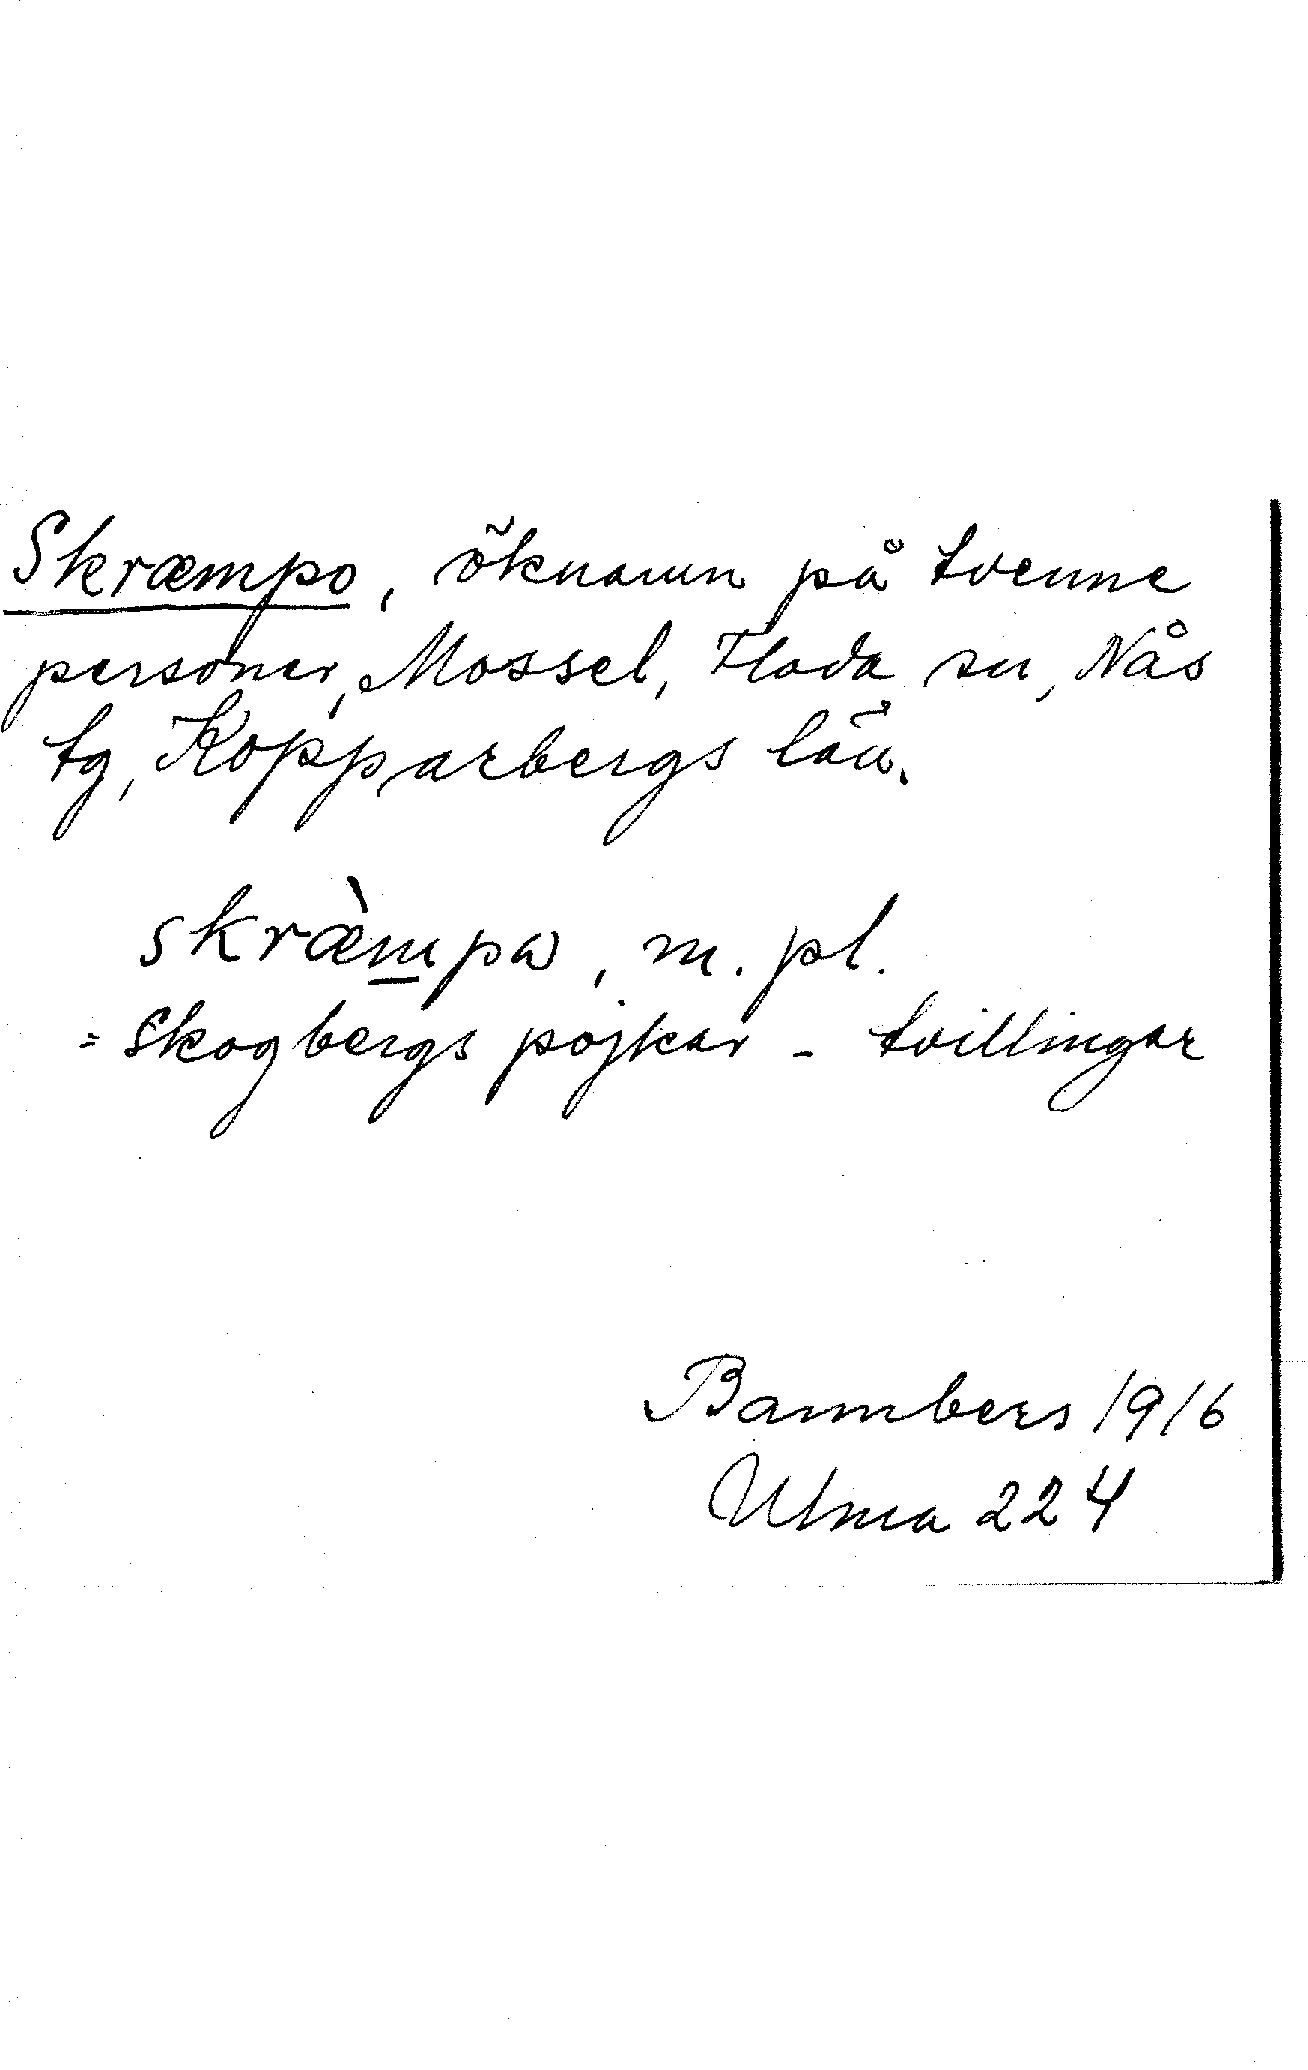 Skræmpo, öknamn på tvenne
personer, Mossel, Floda sn, Nås
tg, Kopparbergs län.
skræ̀mpω, m. pl.
= Skogbergs pojkar - tvillingar
Bannbers 1916
Ulma 224